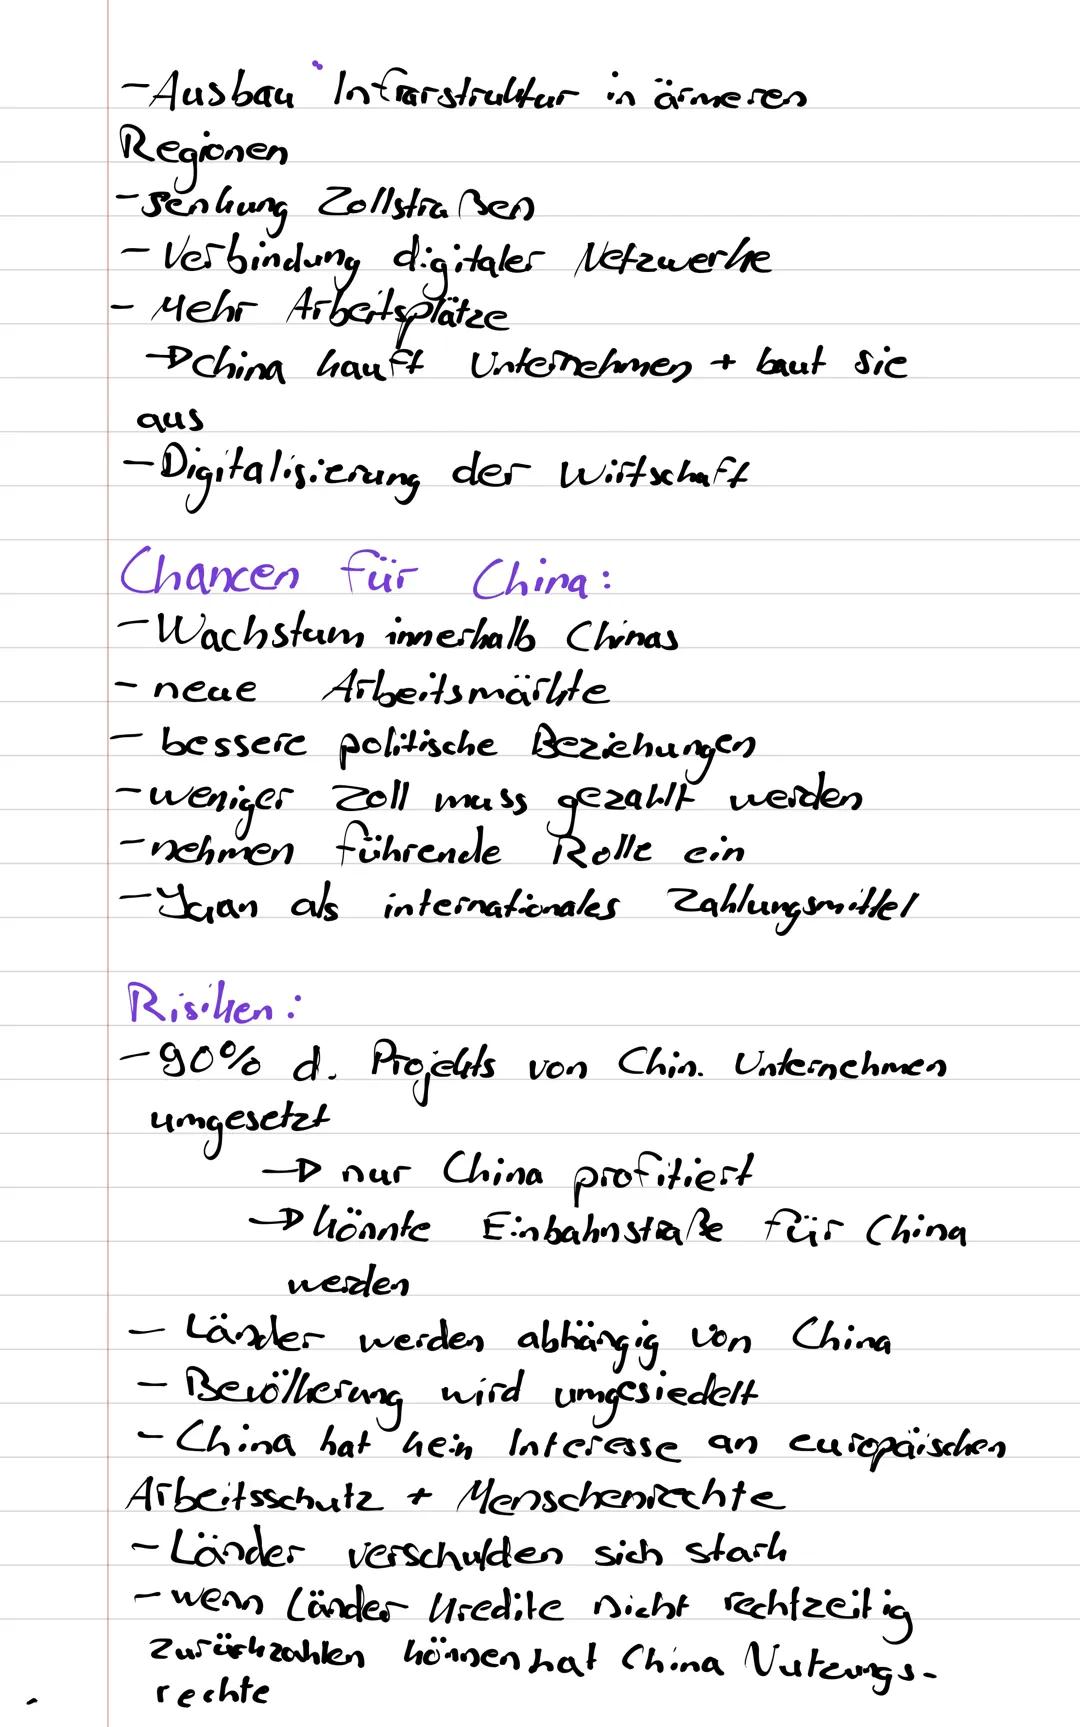 -Ausbau Infrarstruktur in ärmeren
Regionen
-Senkung Zollstraßen
- Verbindung digitaler Netzwerke
- Mehr Arbeitsplätze
→China kauft Unternehmen + baut sie
aus
-Digitalisierung der Wirtschaft
Chancen für China:
-Wachstum innerhalb Chinas
- neue Arbeitsmärkte
- bessere politische Beziehungen
-weniger Zoll muss gezahlt werden
-nehmen führende Rolle ein
-Yuan als internationales Zahlungsmittel
Risiken:
-90% d. Projekts von Chin. Unternehmen
umgesetzt
→ nur China profitiert
→ könnte Einbahnstraße für China
werden
- Länder werden abhängig von China
- Bevölkerung wird umgesiedelt
- China hat kein Interesse an europäischen
Arbeitsschutz + Menschenrechte
- Länder verschulden sich stark
- wenn Länder Kredite nicht rechtzeitig
zurückzahlen können hat China Nutzungs-
rechte